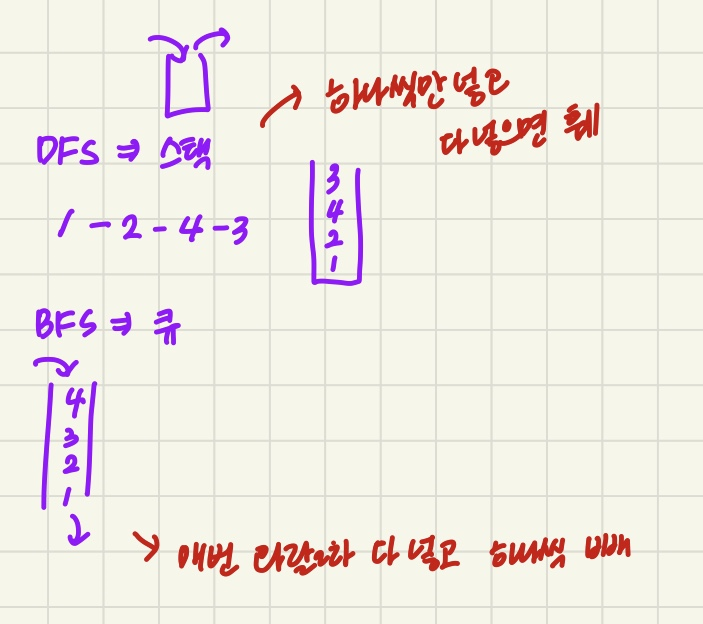 하나씩만 넣은
다 넣으면
DFS ⇒ 스택
1 - 2 - 4 - 3
3
4
2
1
BFS ⇒ 큐
4
3
2
1
매번 다 넣고 하나씩 빼